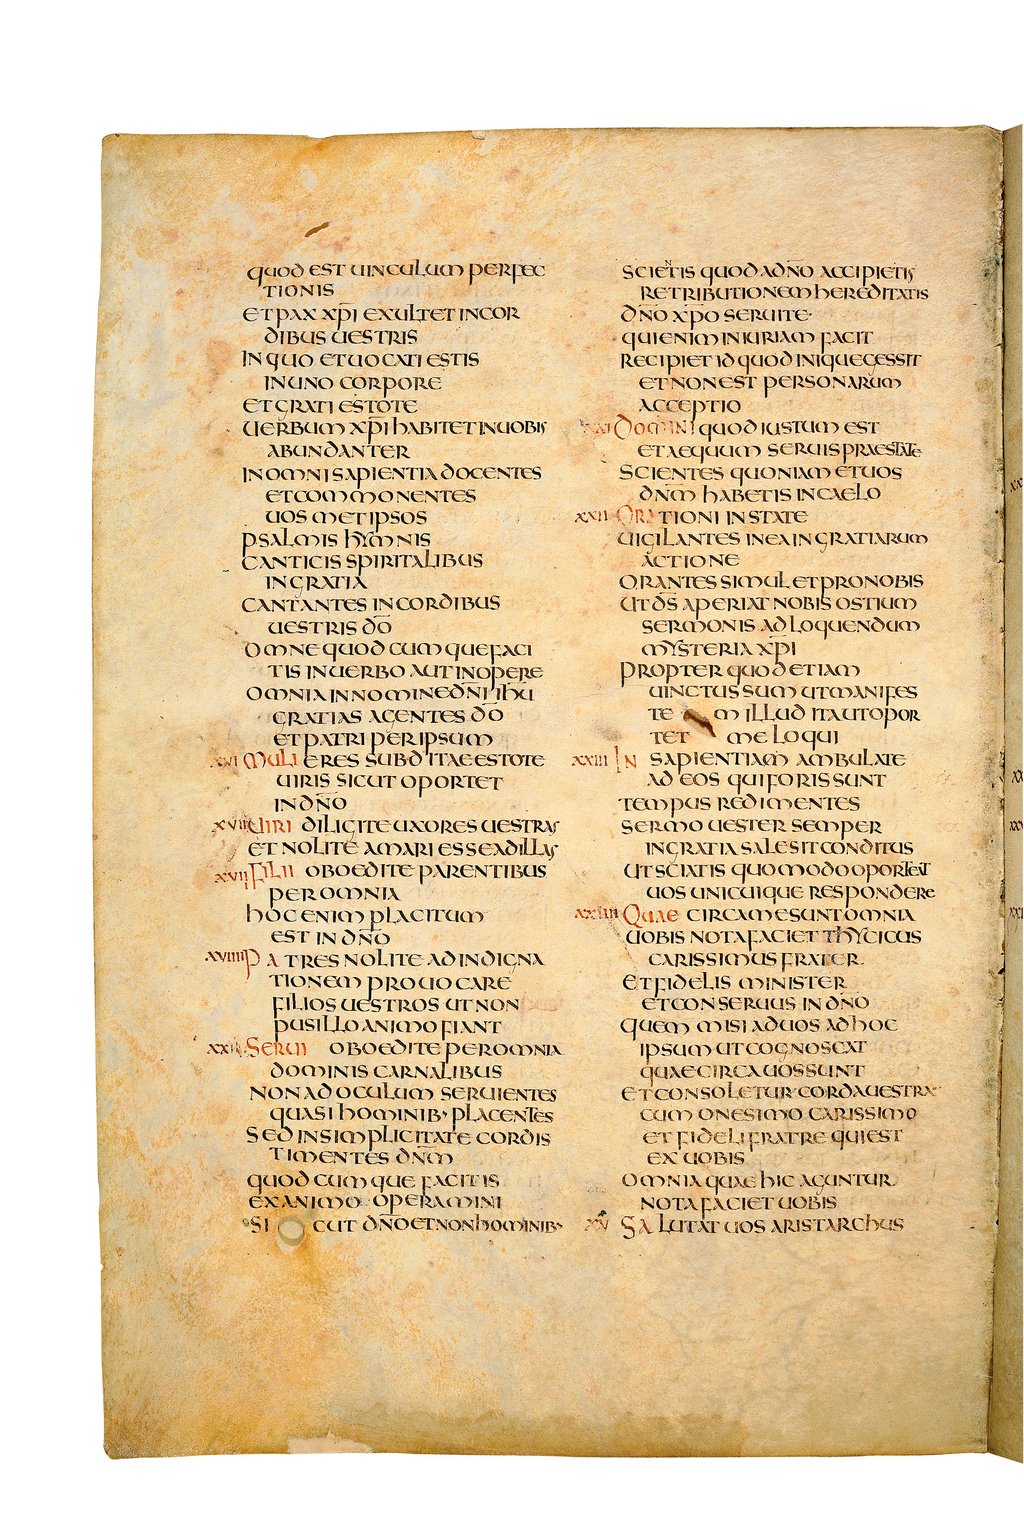 quod est uinculum perfec
tionis
et pax xp̄i exultet in cor
dibus uestris
in quo et uocati estis
in uno corpore
et grati estote
uerbum xp̄i habitet in uobis
abundanter
in omni sapientia docentes
et commonentes
uos metipsos
psalmis hymnis
canticis spiritalibus
in gratia
cantantes in cordibus
uestris dō
omne quodcumque faci
tis in uerbo aut in opere
omnia in nomine dn̄i ihū
gratias agentes dō
et patri per ipsum
xvi mulieres subditae estote
uiris sicut oportet
in dn̄o
xvii uiri diligite uxores uestras
et nolite amari esse ad illas
xviii filii oboedite parentibus
per omnia
hoc enim placitum
est in dn̄o
xviiii patres nolite ad indigna
tionem prouocare
filios uestros ut non
pusillo animo fiant
xx serui oboedite per omnia
dominis carnalibus
non ad oculum seruientes
quasi hominib· placentes
sed in simplicitate cordis
timentes dn̄m
quodcumque facitis
ex animo operamini
sicut dn̄o et non hominib·
scientis quod a dn̄o accipietis
retributionem hereditatis
dn̄o xp̄o seruite·
qui enim iniuriam facit
recipiet id quod inique gessit
et non est personarum
acceptio
xxi domini quod iustum est
et aequum seruis praestate
scientes quoniam et uos
dn̄m habetis in caelo
xxii orationi instate
uigilantes in ea in gratiarum
actione
orantes simul et pro nobis
ut dS̄ aperiat nobis ostium
sermonis ad loquendum
mysteria xp̄i
propter quod etiam
uinctus sum ut manifes
te m illud ita ut opor
tet me loqui
xxiii in sapientiam ambulate
ad eos qui foris sunt
tempus redimentes
sermo uester semper
in gratia sale sit conditus
ut sciatis quomodo oporteat
uos unicuique respondere
xxiiii quae circa me sunt omnia
uobis nota faciet thycicus
carissimus frater
et fidelis minister
et conseruus in dn̄o
quem misi ad uos ad hoc
ipsum ut cognoscat
quae circa uos sunt
et consoletur corda uestra
cum onesimo carissimo
et fideli fratre qui est
ex uobis
omnia quae hic aguntur
nota faciet uobis
xxv salutat uos aristarchus